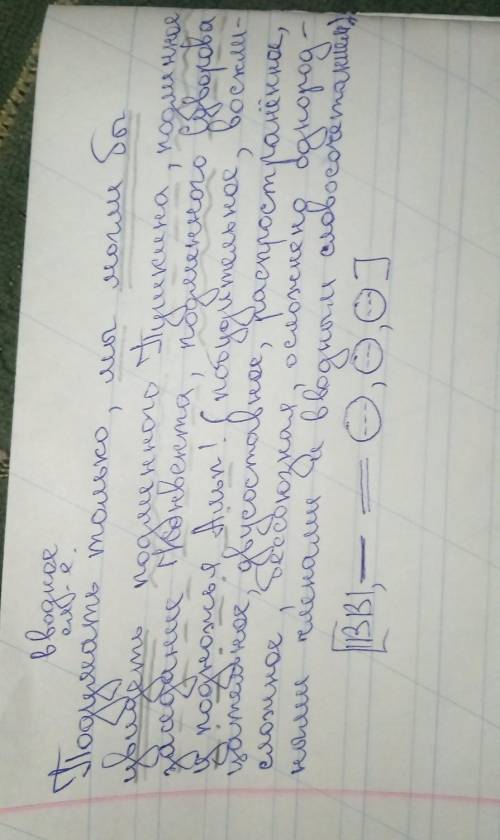 вводное
сл.-е.
Подумать только, мы могли бы
увидеть подлинного Пушкина, подлинное
заседание Конвента, подлинного Суворова
у подножья Альп! (побудительное, воскли-
цательное, двусоставное, распространённое,
сложное, бессоюзная, осложнено однород-
ными членами и вводным словосочетанием).
[|ВВ|, — = , , ]